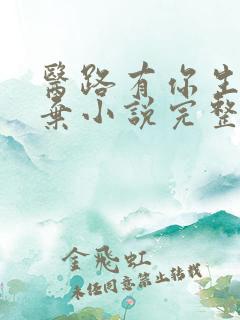 醫路有你生
棄小說完整
金飛虹
未经同意禁止转载